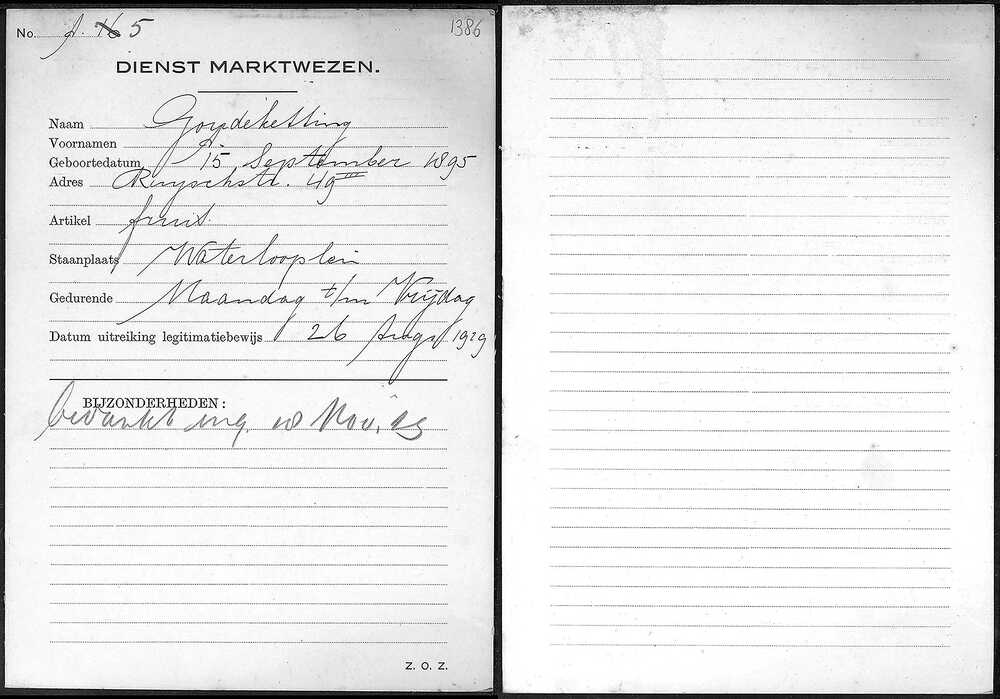 No. A. 16 5 1386
DIENST MARKTWEZEN.
Naam Goudeketting
Voornamen A.
Geboortedatum 15 September 1895
Adres Ruyschstr. 49 III
Artikel fruit.
Staanplaats Waterlooplein
Gedurende Maandag t/m Vrijdag
Datum uitreiking legitimatiebewijs 26 Augs 1929
BIJZONDERHEDEN:
bedankt ing. 18 Nov. 29
Z. O. Z.